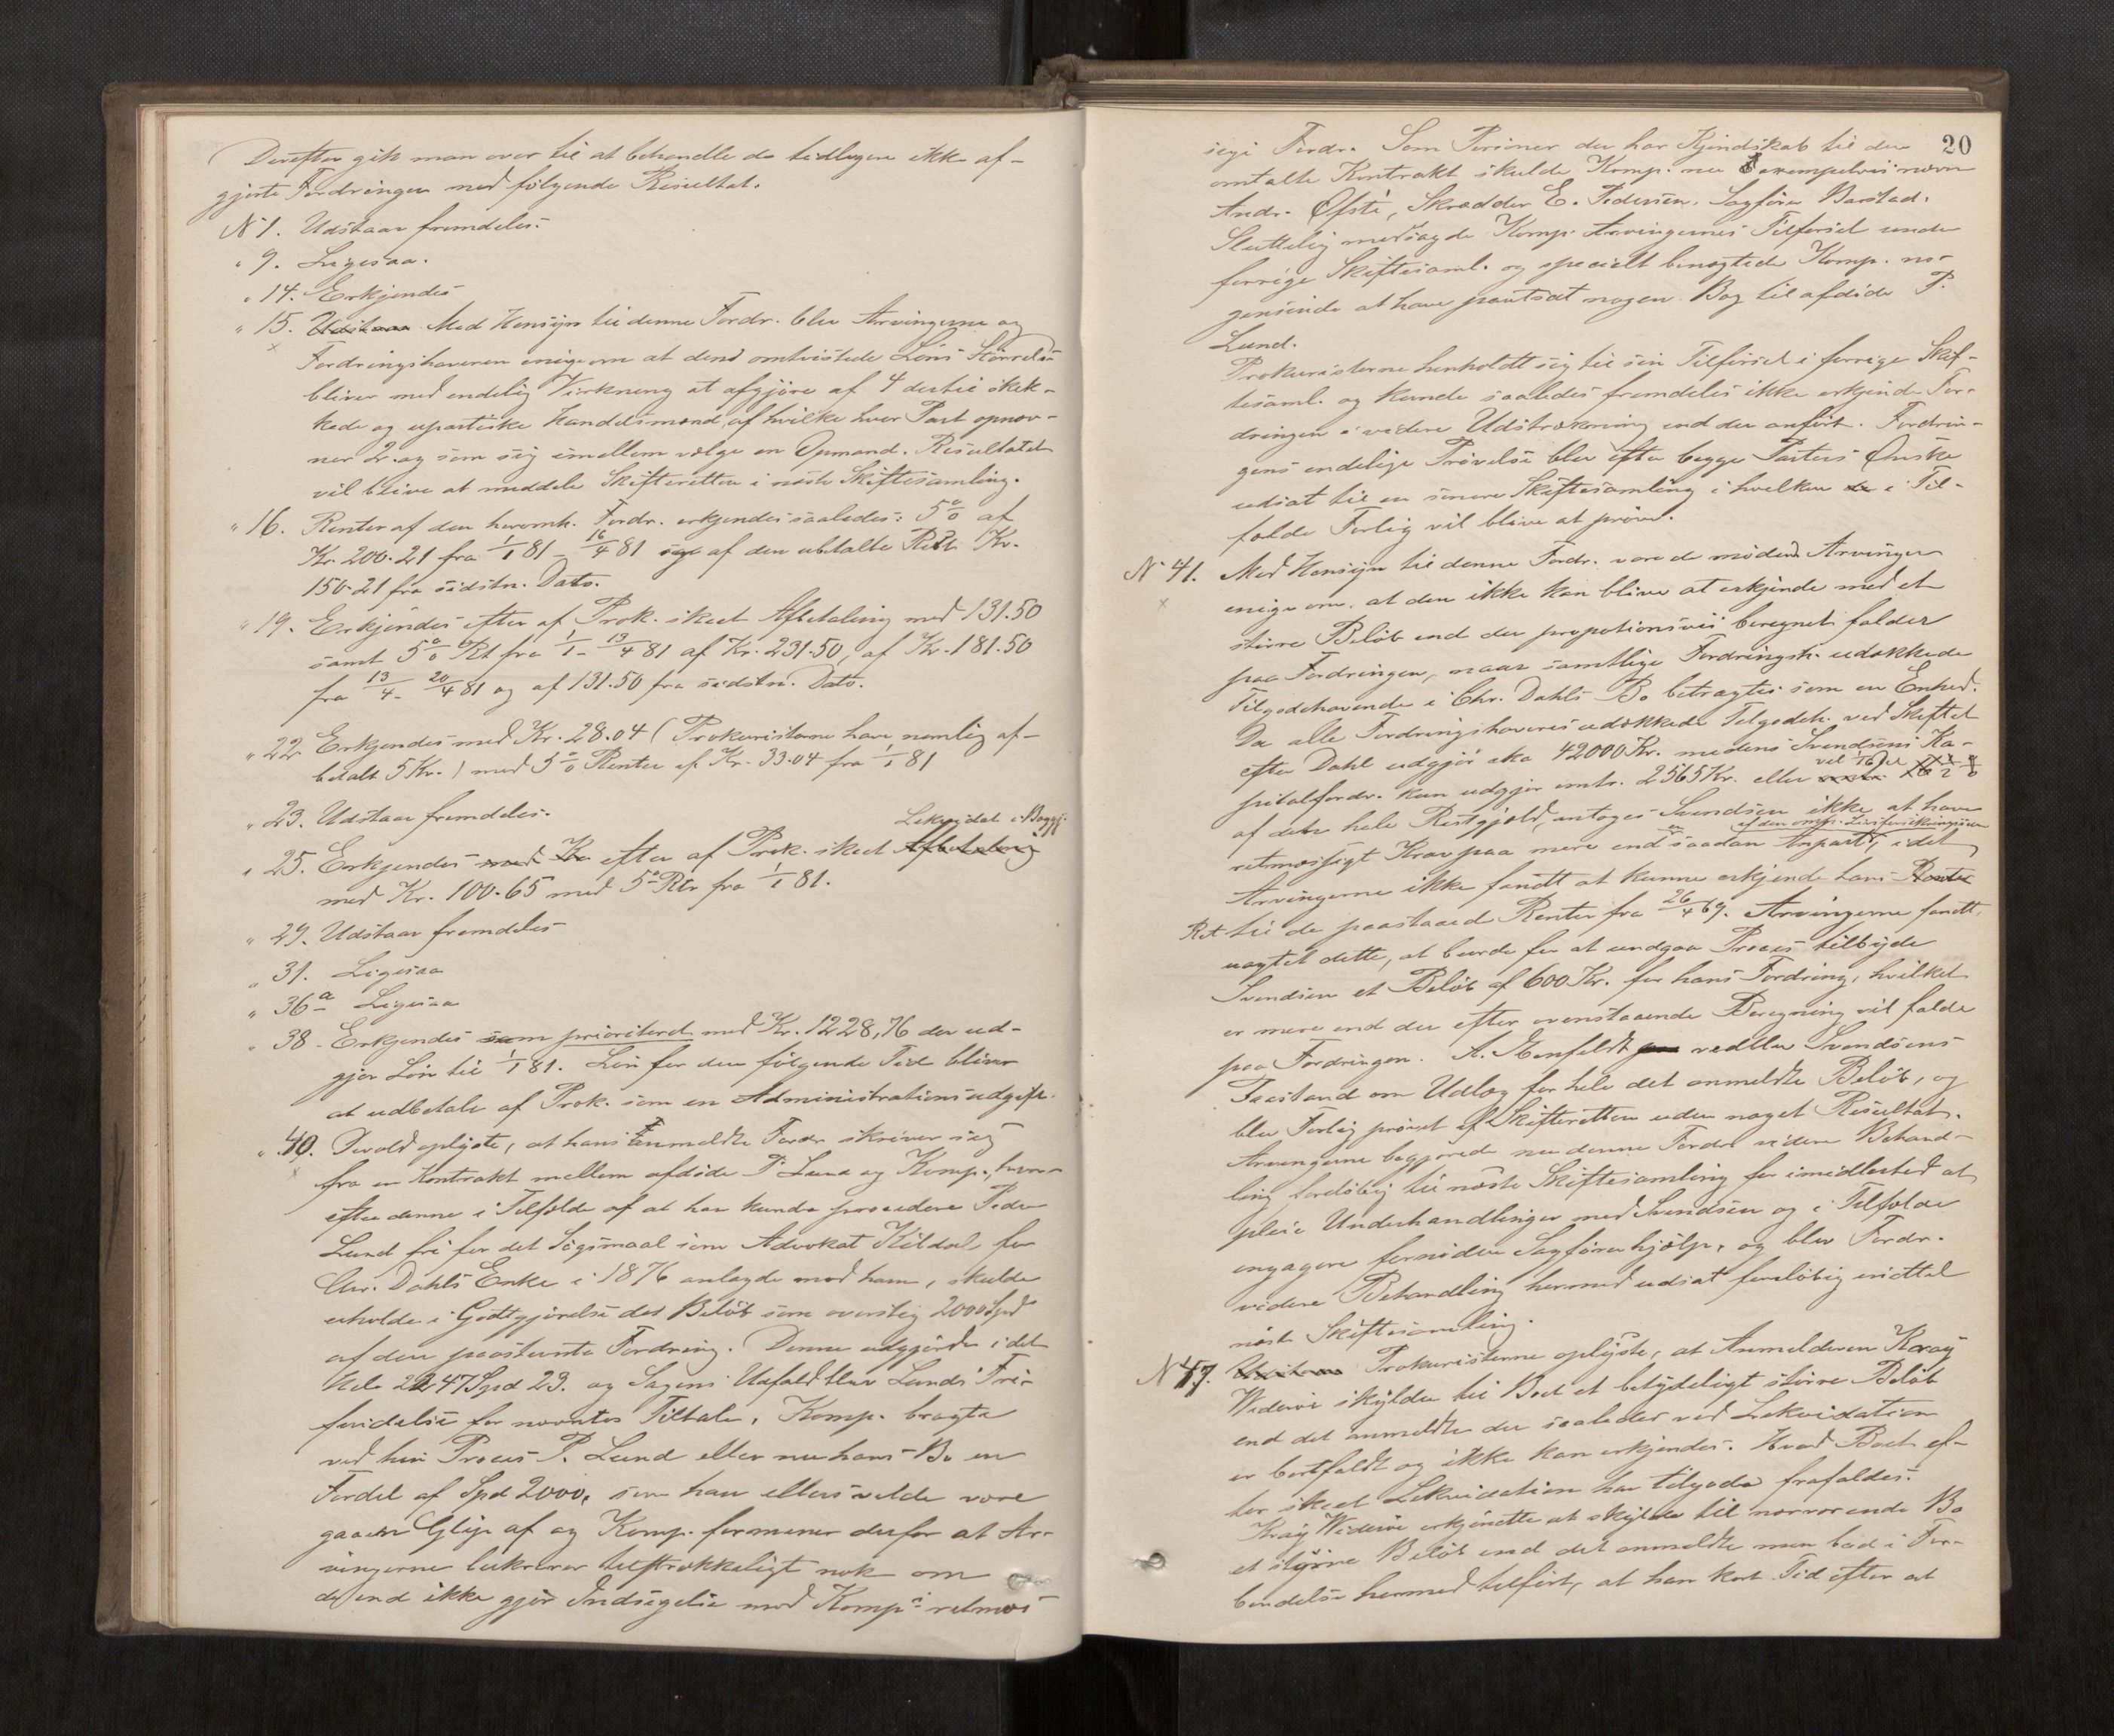 Derefter gik man over til at behandle de tidligere ikke af-
gjorte Fordringer med følgende Resultat.
N 1. Udstaar fremdeles.
" 9. Ligesaa.
" 14. Erkjendes
" 15. Udstaar Med Hensyn til denne Fordr. blev Arvingerne og
Fordringshaveren enige om at dens omtvistede Löns Störrelse
bliver med endelig Virkning at afgjöre af 4 dertil skik-
kede og upartiske Handelsmænd, af hvilke hver Part opnæv-
ner 2. og som sig imellem vælge en Opmand. Resultatet
vil blive at meddele Skifteretten i næste Skiftesamling.
" 16. Renter af den heromh. Fordr. erkjendes saaledes: 5% af
Kr. 200.21 fra 1/1 81 - 16/4 81 og af den ubetalte Rest Kr.
150.21 fra sidstn. Dato.
" 19. Erkjendes efter af Prok. skeet Afbetaling med 131.50
samt 5% Rt fra 1/1 - 13/4 81 af Kr. 231.50, af Kr. 181.50
fra 13/4 - 20/4 81 og af 131.50 fra sidstn. Dato.
" 22 Erkjendes med Kr. 28.04 (Prokuristerne have nemlig af-
betalt 5 Kr.) med 5% Renter af Kr. 33.04 fra 1/1 81
" 23. Udstaar fremdeles.
Lekvidat. i Boggj.
" 25. Erkjendes med Kr efter af Prok. skeet Afbetaling
med Kr. 100.65 med 5% Rtr fra 1/1 81.
" 29. Udstaar fremdeles
" 31. Ligesaa
" 36a Ligesaa
" 38. Erkjendes som prioriteret med Kr. 1228,76 der ud-
gjör Lön til 1/1 81. Lön for den fölgende Tid bliver
at udbetale af Prok. som en Administrationsudgift.
" 40. Devold oplyste, at hans anmeldte Fordr skriver sig
fra en Kontrakt mellem afdöde P. Lund og Komp., hvor-
efter denne i Tilfælde af at han kunde procedere Peder
Lund fri for det Sögsmaal som Advokat Kildal for
Chr. Dahls Enke i 1876 anlagde mod ham, skulde
erholde i Godtgjörelse det Belöb som oversteg 2000 Spd
af den paastevnte Fordring. Denne udgjorde i det
Hele 2247 Spd 23. og Sagens Udfald blev Lunds Fri-
findelse for nævntes Tiltale. Komp. bragte
ved hin Proces P. Lund eller nu hans Bo en
Fordel af Spd 2000, som han ellers vilde være
gaaen Glip af og Komp. formener derfor at Ar-
vingerne lukrerer tilstrækkeligt nok om
de end ikke gjör Indsigelse mod Komp's retmæs-
20
sige Fordr. Som Personer der har Kjendskab til den
omtalte Kontrakt skulde Komp. nu Exempelvis nævne
Andr. Øfsti, Skrædder E. Pedersen, Sagförer Barstad.
Sluttelig modsagde Komp. Arvingernes Tilförsel under
forrige Skiftesaml. og specielt benægtede Komp. no-
gensinde at have pantsat nogen Bog til afdöde P.
Lund.
Prokuristerne henholdt sig til sin Tilförsel i forrige Skif-
tesaml. og kunde saaledes fremdeles ikke erkjende For-
dringen i videre Udstrækning end der anfört. Fordrin-
gens endelige Prövelse blev efter begge Parters Önske
udsat til en senere Skiftesamling i hvilken da i Til-
fælde Forlig vil blive at pröve.
N 41. Med Hensyn til denne Fordr. vare de mödende Arvinger
enige om, at den ikke kan blive at erkjende med et
större Belöb end der propotionsvis beregnet falder
paa Fordringen, naar samtlige Fordringsh. udækkede
Tilgodehavende i Chr. Dahls Bo betragtes som en Enhed.
Da alle Fordringshaveres udækkede Tilgodeh. ved Skiftet
efter Dahl udgjör cka 42000 Kr. medens Svendsens Ka-
vel 1/16 Del
pitalfordr. kun udgjör omtr. 2565 Kr. eller
af dets hele Restgjæld, antages Svendsen ikke at have
af den omp. Livsforsikringssum
retmæssigt Krav paa mere end en saadan Anpart, idet
Arvingerne ikke fandt at kunne erkjende hans Renter
Ret til de paastaaed Renter fra 26/4 69. Arvingerne fandt,
uagtet dette, at burde for at undgaa Proces tilbyde
Svendsen et Belöb af 600 Kr. for hans Fordring, hvilket
er mere end der efter ovenstaaende Beregning vil falde
paa Fordringen. A. vedblev Svendsens
Paastand om Udlæg for hele det anmeldte Belöb, og
blev Forlig prövet af Skifteretten uden noget Resultat.
Arvingerne begjærede nu denne Fordrs videre Behand-
ling foreløbig til næste Skiftesamling for imidlertid at
pleie Underhandlinger med Svendsen og i Tilfælde
engagere fornöden Sagförerhjælp, og blev Fordr.
videre Behandling hermed udsat forelöbig indtil
næste Skiftesamling.
N 47. Udstaar Prokuristerne oplyste, at Anmelderen Karöy
Wideröe skylder til Boet et betydeligt större Belöb
end det anmeldte der saaledes ved Lekvidation
er bortfaldt og ikke kan erkjendes. Hvad Boet ef-
ter skeet Lekvidation har tilgode frafaldes.
Kröy Wideröe erkjendte at skylde til nærværende Bo
et större Belöb end det anmeldte men bad i For-
bindelse hermed tilfört, at han kort Tid efter at